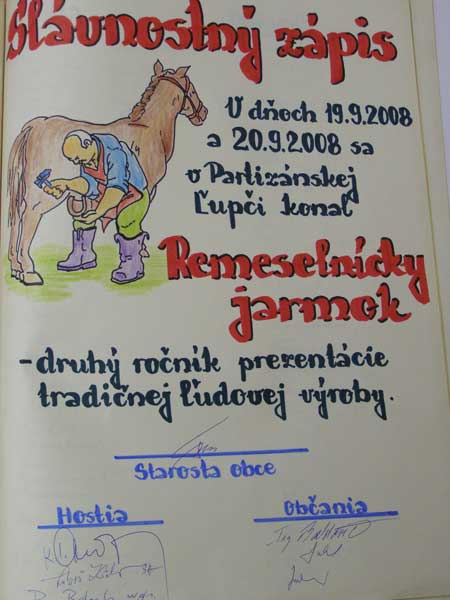 Slávnostný zápis
V dňoch 19.9.2008
a 20.9.2008 sa
v Partizánskej
Ľupči konal
Remeselnícky
jarmok
-druhý ročník prezentácie
tradičnej ľudovej výroby.
Starosta obce
Hostia
Občania
Ing